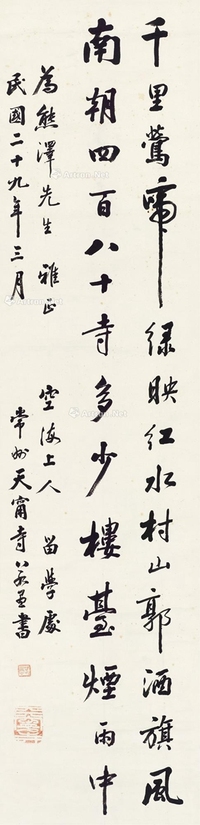 千里鶯啼綠映紅水村山郭酒旗風
南朝四百八十寺多少樓臺煙雨中
為熊澤先生雅正 空海上人留學處
民國二十九年三月 常州天甯寺書